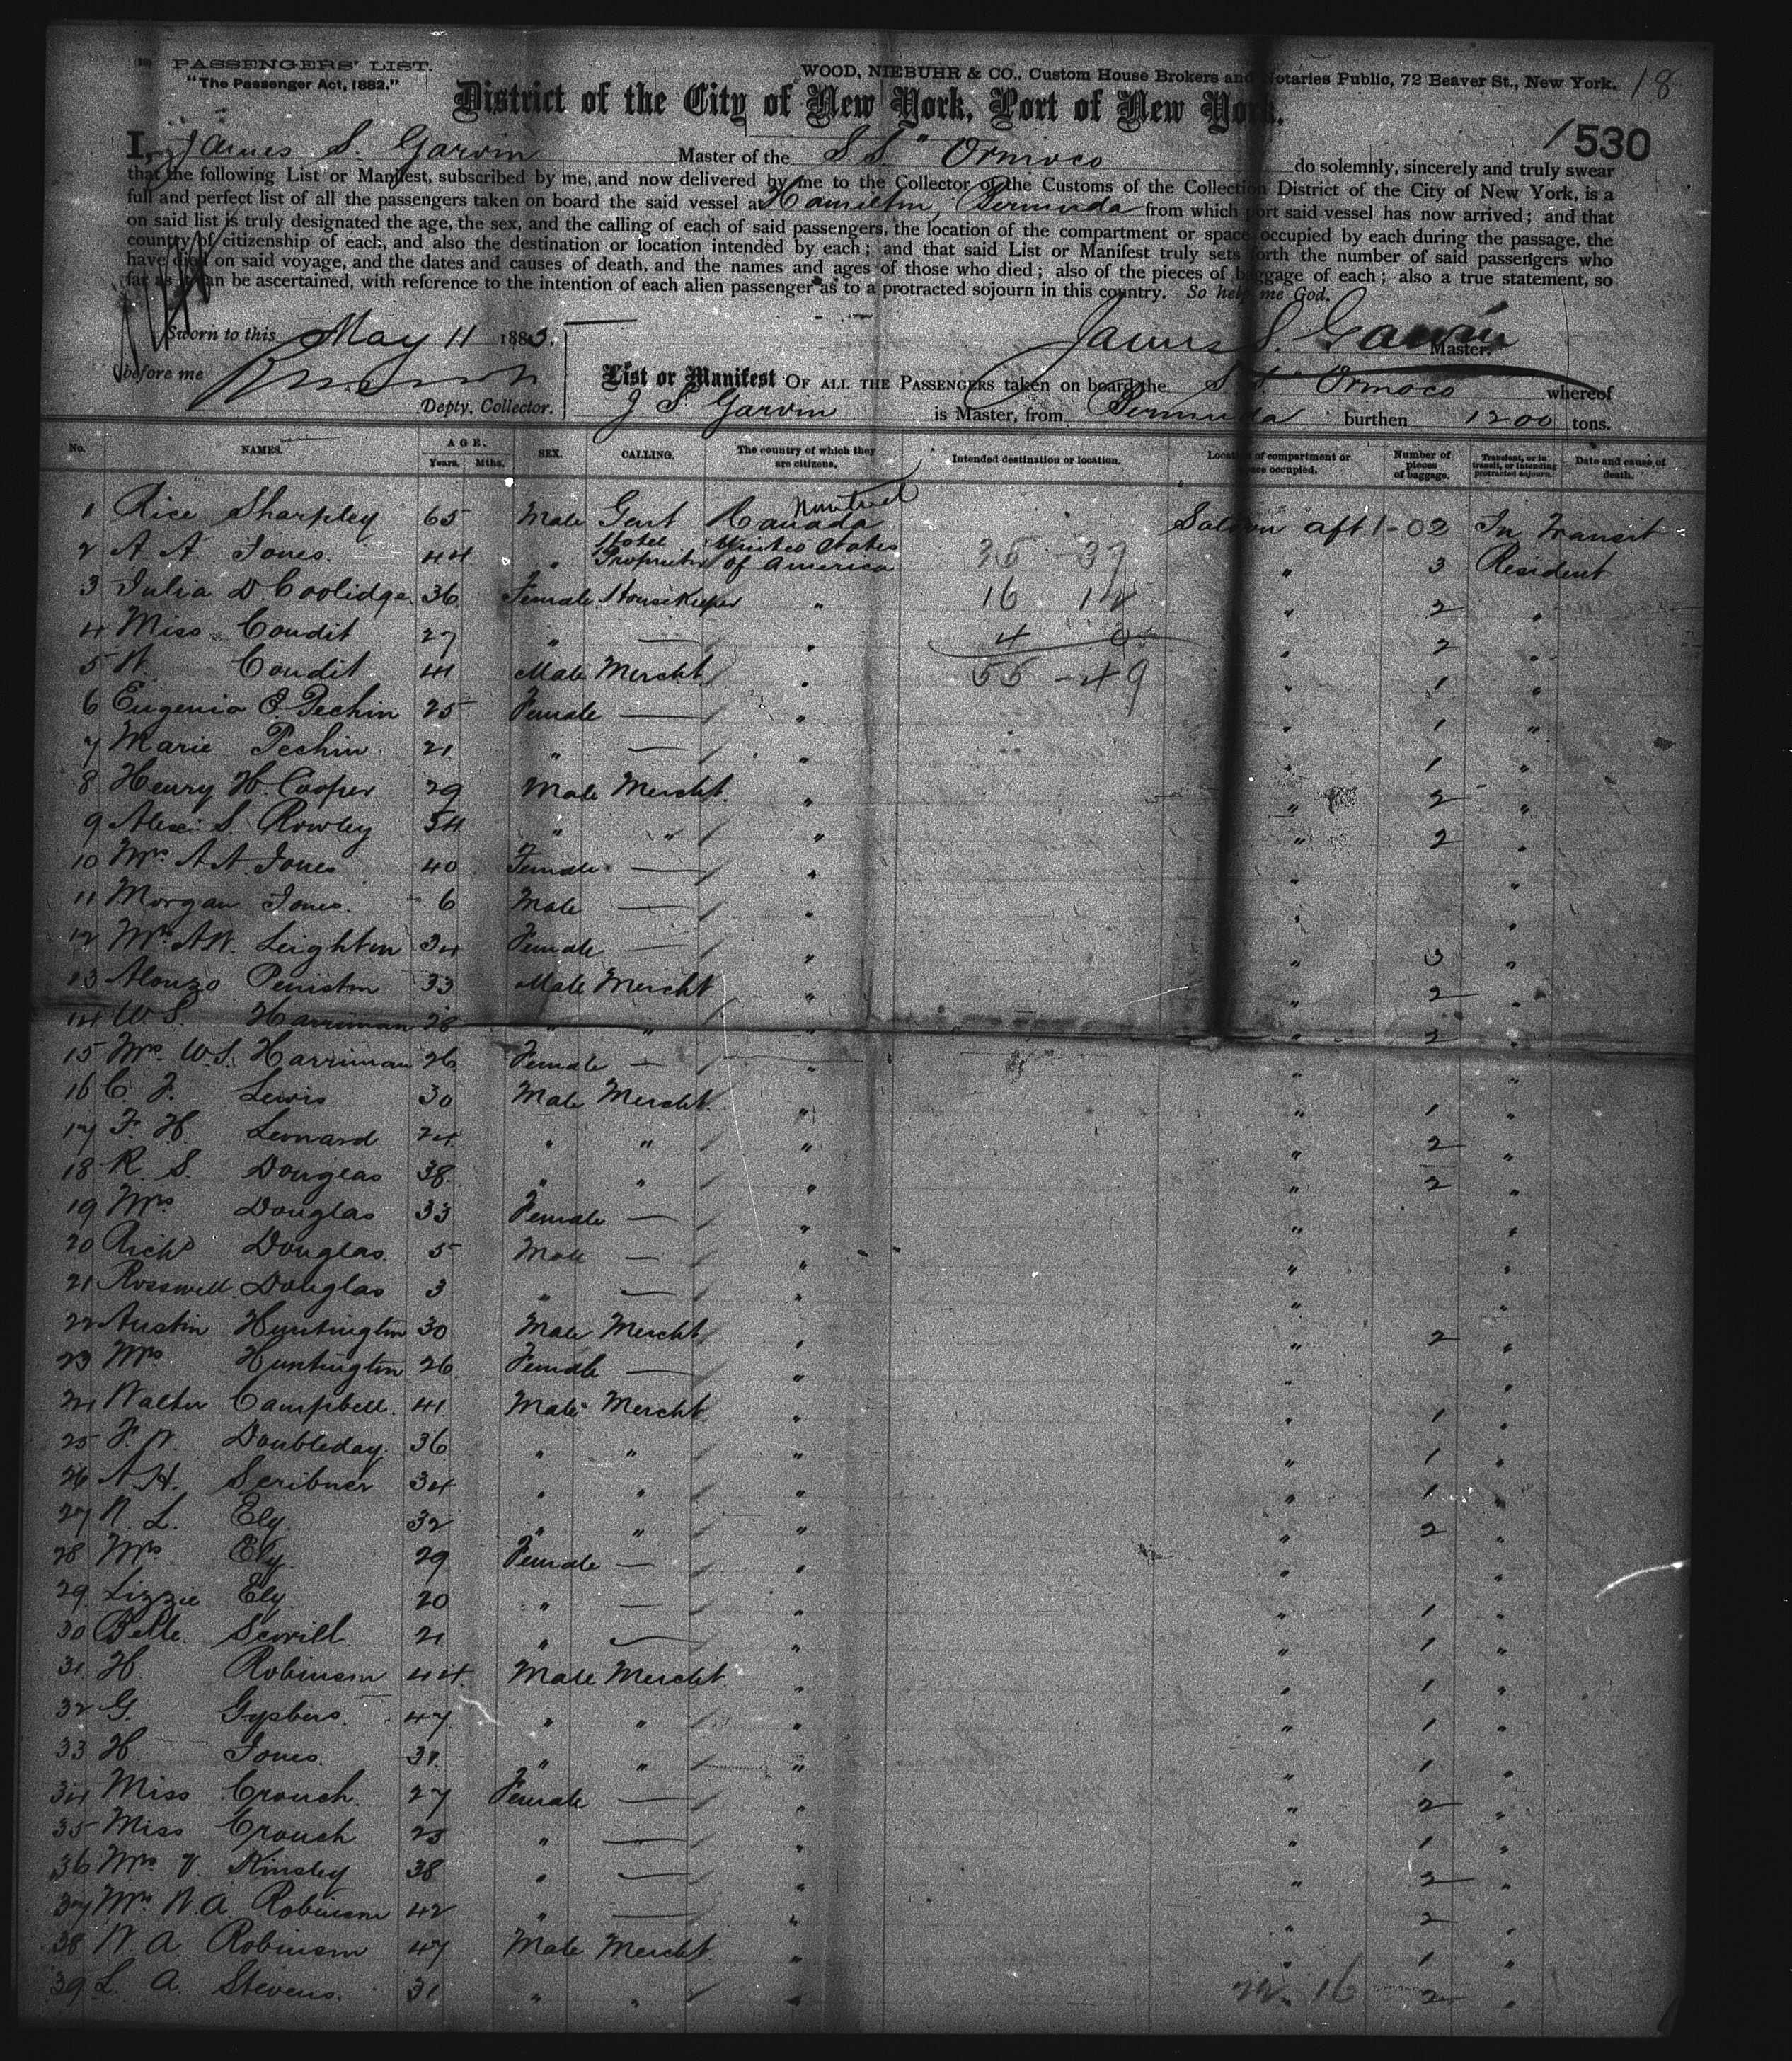 (18) PASSENGERS' LIST.
"The Passenger Act, 1882."
WOOD, NIEBUHR & CO., Custom House Brokers and Notaries Public, 72 Beaver St., New York. 18
District of the City of New York, Port of New York.
1530
I, James S. Garvin Master of the S.S. "Ormoco do solemnly, sincerely and truly swear
that the following List or Manifest, subscribed by me, and now delivered by me to the Collector of the Customs of the Collection District of the City of New York, is a
full and perfect list of all the passengers taken on board the said vessel at Hamilton, Bermuda from which port said vessel has now arrived; and that
on said list is truly designated the age, the sex, and the calling of each of said passengers, the location of the compartment or space occupied by each during the passage, the
country of citizenship of each, and also the destination or location intended by each; and that said List or Manifest truly sets forth the number of said passengers who
have died on said voyage, and the dates and causes of death, and the names and ages of those who died; also of the pieces of baggage of each; also a true statement, so
far as it can be ascertained, with reference to the intention of each alien passenger as to a protracted sojourn in this country. So help me God.
Sworn to this May 11 188
James S. Garvin
Master.
before me
Depty. Collector.
List or Manifest OF ALL THE PASSENGERS taken on board the S.S. Ormoco whereof
J S Garvin is Master, from Bermuda burthen 1200 tons.
No. NAMES. AGE. Years. Mths. SEX. CALLING. The country of which they are citizens. Intended destination or location. Location of compartment or space occupied. Number of pieces of baggage. Transient, or in transit, or intending protracted sojourn. Date and cause of death.
Montreal
1 Rice Sharpley 65 Male Gent Canada Saloon aft 1-02 In Transit
2 A A Jones. 44 " Hotel Proprietor United States of America 35 - 37 " 3 Resident
3 Julia D. Coolidge 36 Female Housekeeper " 16 12 " 2 "
4 Miss Condit 27 " — " 4 0 " 2 "
5 W. Condit 41 Male Mercht. " 55 - 49 " 1 "
6 Eugenia E. Pechin 25 Female — " " 1 "
7 Marie Pechin 21 " — " " 1 "
8 Henry H. Cooper 29 Male Mercht. " " 2 "
9 Alex. S. Rowley 54 " " " " 2 "
10 Mrs A A Jones 40 Female — " " "
11 Morgan Jones. 6 Male — " " "
12 Mrs A.W. Leighton 34 Female — " " 3 "
13 Alonzo Peniston 33 Male Mercht " " 2 "
14 W.S. Harriman 28 " " " " 2 "
15 Mrs W.S. Harriman 26 Female — " " "
16 C. J. Lewis 30 Male Mercht. " " 1 "
17 F. H. Leonard 24 " " " " 2 "
18 R. S. Douglas 38 " " " " 2 "
19 Mrs Douglas 33 Female — " " "
20 Richd Douglas. 5 Male — " " "
21 Rosswell Douglas 3 " — " " "
22 Austin Huntington 30 Male Mercht " " 2 "
23 Mrs Huntington 26 Female — " " "
24 Walter Campbell. 41 Male Mercht. " " 1 "
25 F. N. Doubleday. 36 " " " " 1 "
26 A H. Scribner 34 " " " " 1 "
27 N. L. Ely. 32 " " " " 2 "
28 Mrs Ely. 29 Female — " " "
29 Lizzie Ely 20 " — " " 1 "
30 Belle 21 " — " " 1 "
31 H. Robinson 44 Male Mercht " " 1 "
32 G. Gysbers. 47 " " " " 1 "
33 H Jones. 31. " " " " 1 "
34 Miss Crouch. 27 Female — " " 2 "
35 Miss Crouch 23 " — " " 1 "
36 Mrs V. Kinsley 38 " — " " 2 "
37 Mrs W.A. Robinson 42 " — " " 2 "
38 W. A. Robinson 47 Male Mercht. " " 1 "
39 L. A. Stevens. 31 " " " 22. 16 2 "